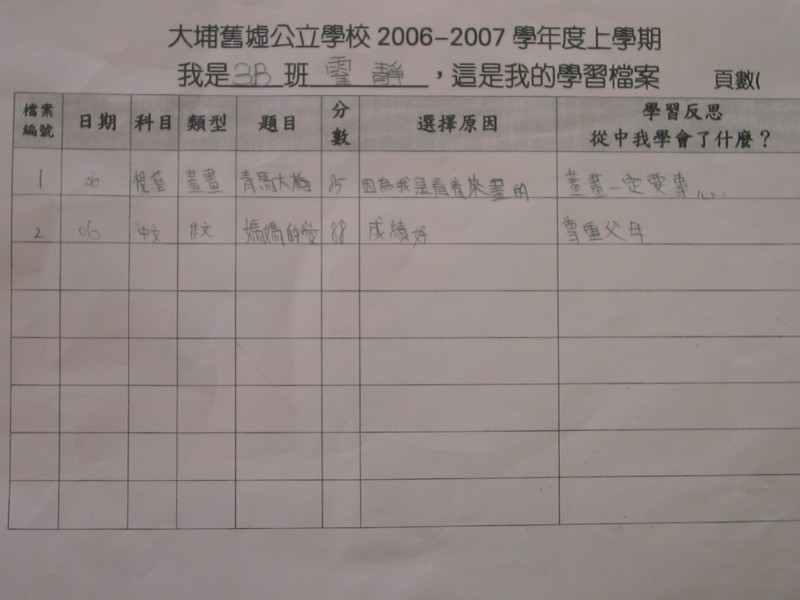 大埔舊墟公立學校 2006-2007 學年度上學期
我是3B班 靜，這是我的學習檔案 頁數(
檔案編號 日期 科目 類型 題目 分數 選擇原因 學習反思 從中我學會了什麼？
1 視藝 畫畫 青馬大橋 85 因為我是看着來畫的 畫畫一定要專心
2 06 中文 作文 媽媽的愛 88 成績好 尊重父母